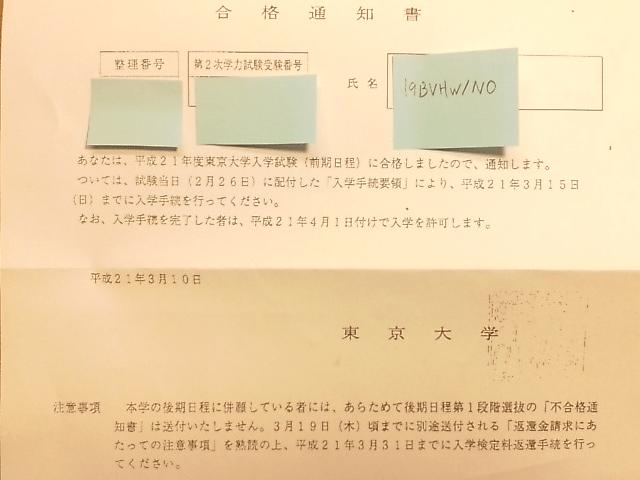 合格通知書
整理番号 第2次学力試験受験番号
氏名 19BVHW/NO
あなたは、平成21年度東京大学入学試験（前期日程）に合格しましたので、通知します。
ついては、試験当日（2月26日）に配付した「入学手続要領」により、平成21年3月15日
（日）までに入学手続を行ってください。
なお、入学手続を完了した者は、平成21年4月1日付けで入学を許可します。
平成21年3月10日
東京大学
注意事項 本学の後期日程に併願している者には、あらためて後期日程第1段階選抜の「不合格通
知書」は送付いたしません。3月19日（木）頃までに別途送付される「返還金請求にあ
たっての注意事項」を熟読の上、平成21年3月31日までに入学検定料返還手続を行っ
てください。